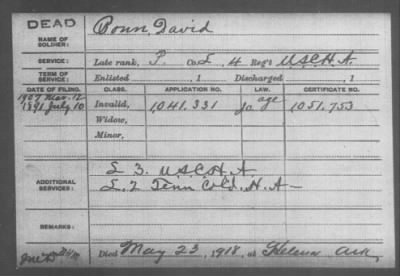 DEAD
NAME OF SOLDIER: Bonn, David
SERVICE: Late rank, P. Co. L, 4 Reg't U.S.C.H.A.
TERM OF SERVICE: Enlisted , 1 Discharged , 1
DATE OF FILING. CLASS. APPLICATION NO. LAW. CERTIFICATE NO.
1907 Mar. 12 age
1891 July 10 Invalid, 1,041,331 1,051,753
Widow,
Minor,
ADDITIONAL SERVICES: L 3. U.S.C.H.A
L. 2 Tenn Cold. H. A —
REMARKS:
Died May 23, 1918, at Helena Ark